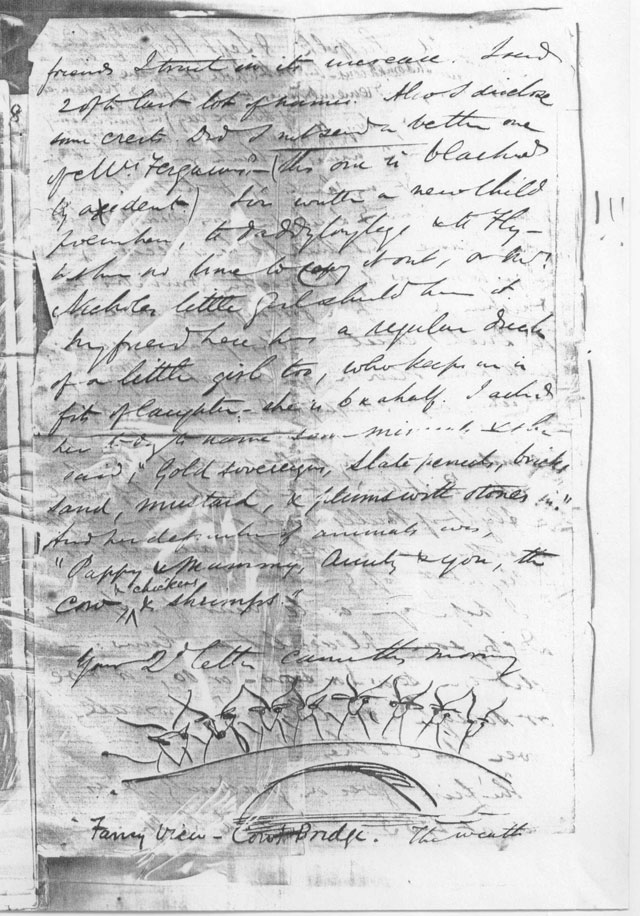 friends I trust in its increase. I send
20 of the last lot of names. Also I disclose
some crests Did I not send a better one
of Mrs Ferguson's - (this one is blacked
by axident) Iv written a new child
poem here, to daddy longlegs & the Fly -
& have no time to copy it out, or Mrs
Nicholas little girl should have it
My friend here has a regular duck
of a little girl too, who keeps us in
fits of laughter - she is 6 & a half. I asked
her to name some & she
said, "Gold sovereigns, slate pencils, bricks,
sand, mustard, & plums with stones in."
And her of animals was,
"Pappy & Mummy, Aunty & you, the
cow & chickens & shrimps"
Your 2d letter came this morning
Fancy View - Cow Bridge. The weath
8